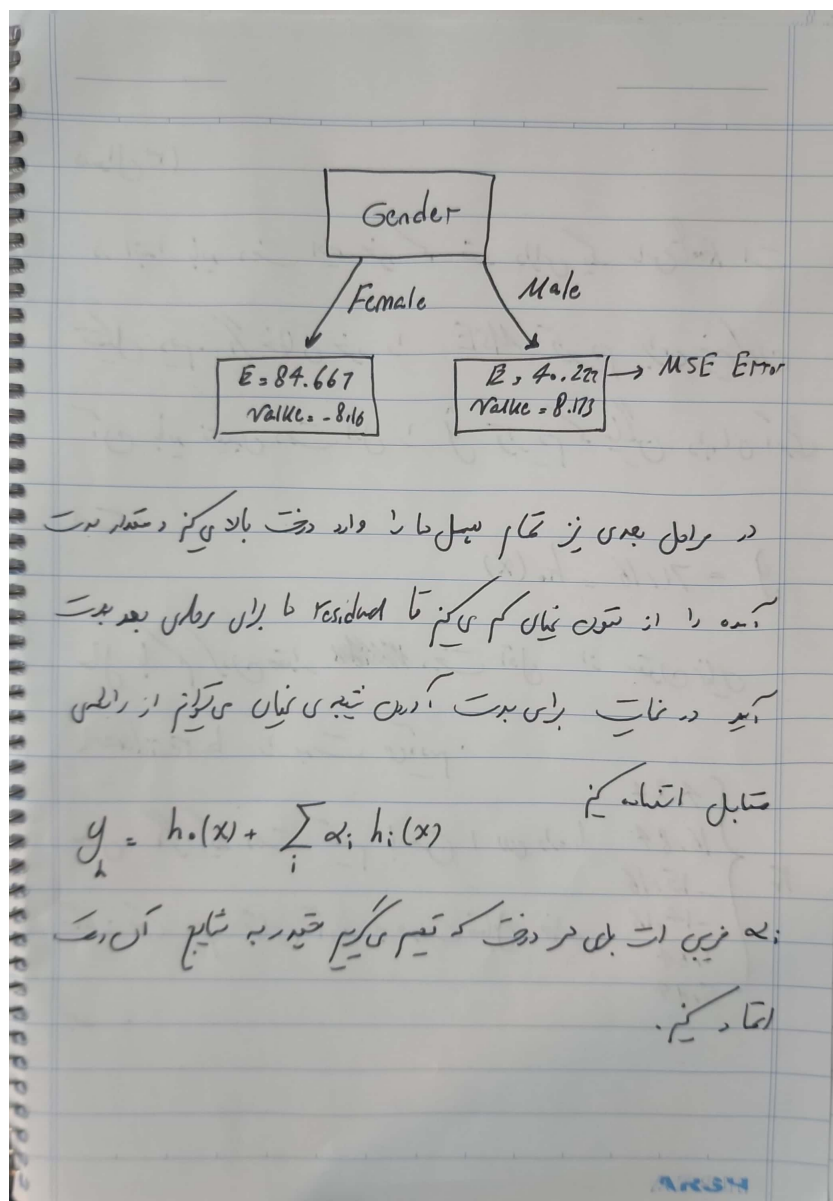 Gender
Female
Male
E = 84.667
Value = -8.16
E = 40.222 → MSE Error
Value = 8.173
در مراحل بعدی نیز تمام سمپل ها را وارد درخت بالا می‌کنیم و مقدار بدست
آمده را از ستون نمایان کم می‌کنیم تا residual ها برای مرحله‌ی بعد بدست
آید در نهایت برای بدست آوردن نتیجه‌ی نهایی می‌توانیم از رابطه‌ی
مقابل استفاده کنیم
y = h₀(x) + ∑ᵢ αᵢ hᵢ(x)
αᵢ ضریبی است برای هر درخت که تصمیم می‌گیریم چقدر به نتایج آن درخت
اعتماد کنیم.